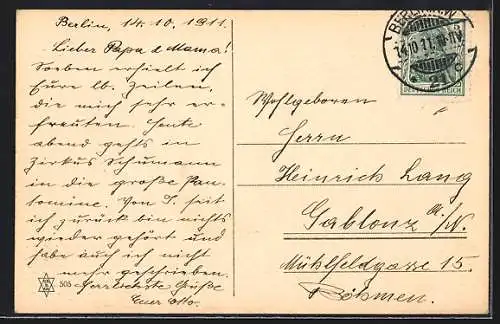 Berlin, 14.10.1911.
Lieber Papa & Mama!
Soeben erhielt ich
Eure lb. Zeilen,
die mich sehr er-
freuten. Heute
abend gehts in
Zirkus Schumann
in die große Pan-
tomime. Von S. seit
ich zurück bin nichts
wieder gehört und
habe auch ich nicht
mehr geschrieben.
Herzlichste Grüße
Euer Otto.
505
BERLIN
14.10.11
Wohlgeboren
Herrn
Heinrich Lang
Gablonz a/N.
Mühlfeldgasse 15.
Böhmen.